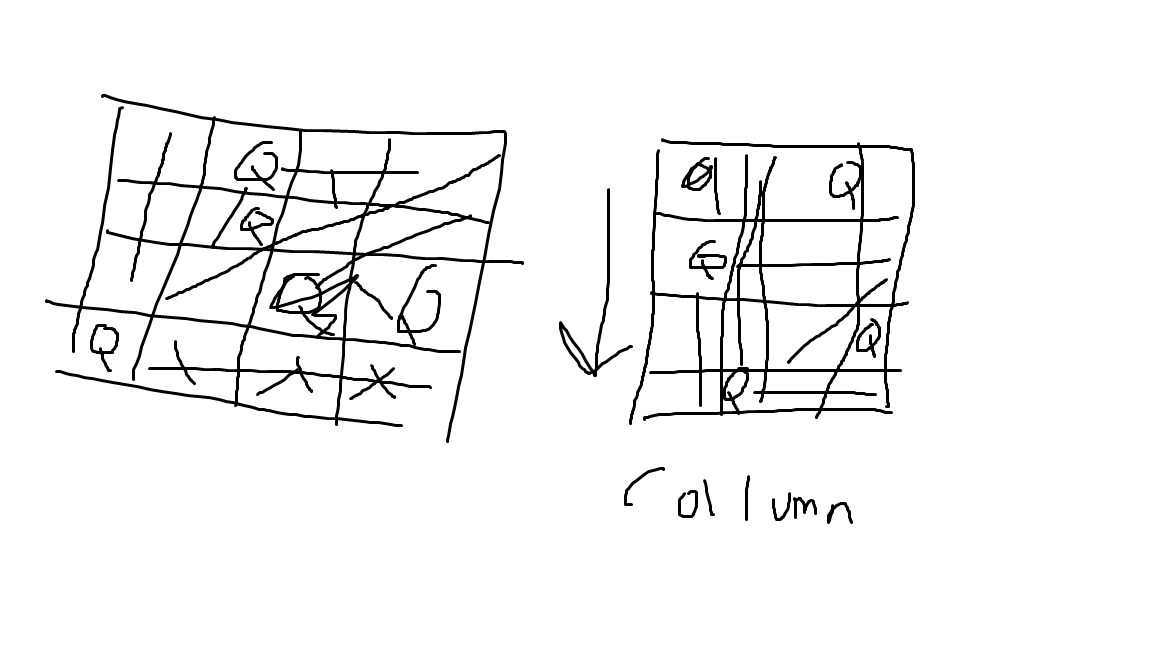 Q Q Q
Q Q
Q Q
Q Q
Q
Collumn